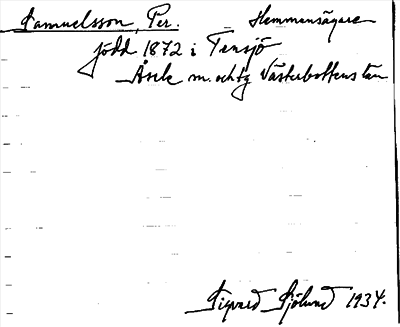 Samuelsson, Per. Hemmansägare
född 1872 i Tensjö
Åsele m. ochtg Västerbottens län
Sigvard Sjölund 1934.